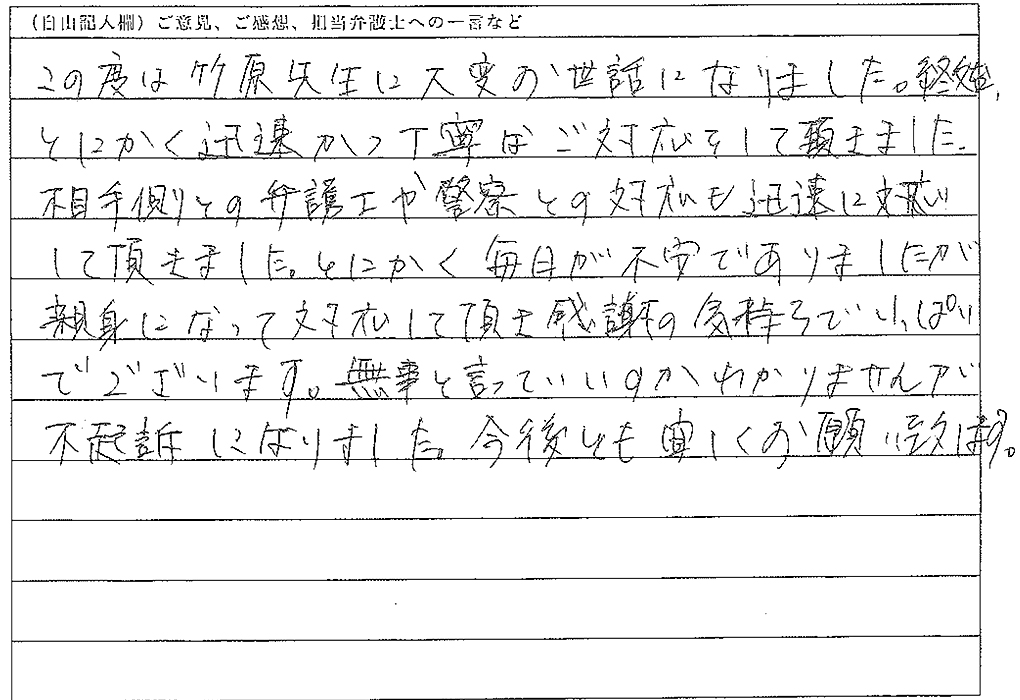 (自由記入欄)ご意見、ご感想、担当弁護士への一言など
この度は竹原先生に大変お世話になりました。終始、
とにかく迅速かつ丁寧なご対応をして頂きました。
相手側との弁護士や警察との対応も迅速に対応
して頂きました。とにかく毎日が不安でありましたが
親身になって対応して頂き感謝の気持ちでいっぱい
でございます。無事と言っていいのかわかりませんが
不起訴になりました。今後とも宜しくお願い致します。